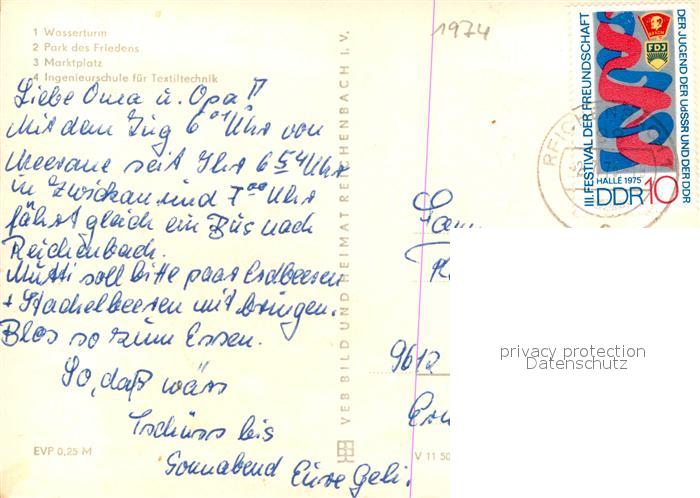 1 Wasserturm
2 Park des Friedens
3 Marktplatz
4 Ingenieurschule für Textiltechnik
1974
Liebe Oma u. Opa!!
Mit dem Zug 6 01 Uhr von
Meerane seit Ihr 6 54 Uhr
in Zwickau und 7 00 Uhr
fährt gleich ein Bus nach
Reichenbach.
Mutti soll bitte paar Erdbeeren
+ Stachelbeeren mit bringen.
Blos so zum Essen.
So, daß wärs
Tschüss bis
Sonnabend Eure Geli.
EVP 0,25 M
VEB BILD UND HEIMAT REICHENBACH I. V.
V 11 50
III. FESTIVAL DER FREUNDSCHAFT
DER JUGEND DER UdSSR UND DER DDR
FDJ
HALLE 1975
DDR 10
REICHENBA
9612
privacy protection
Datenschutz